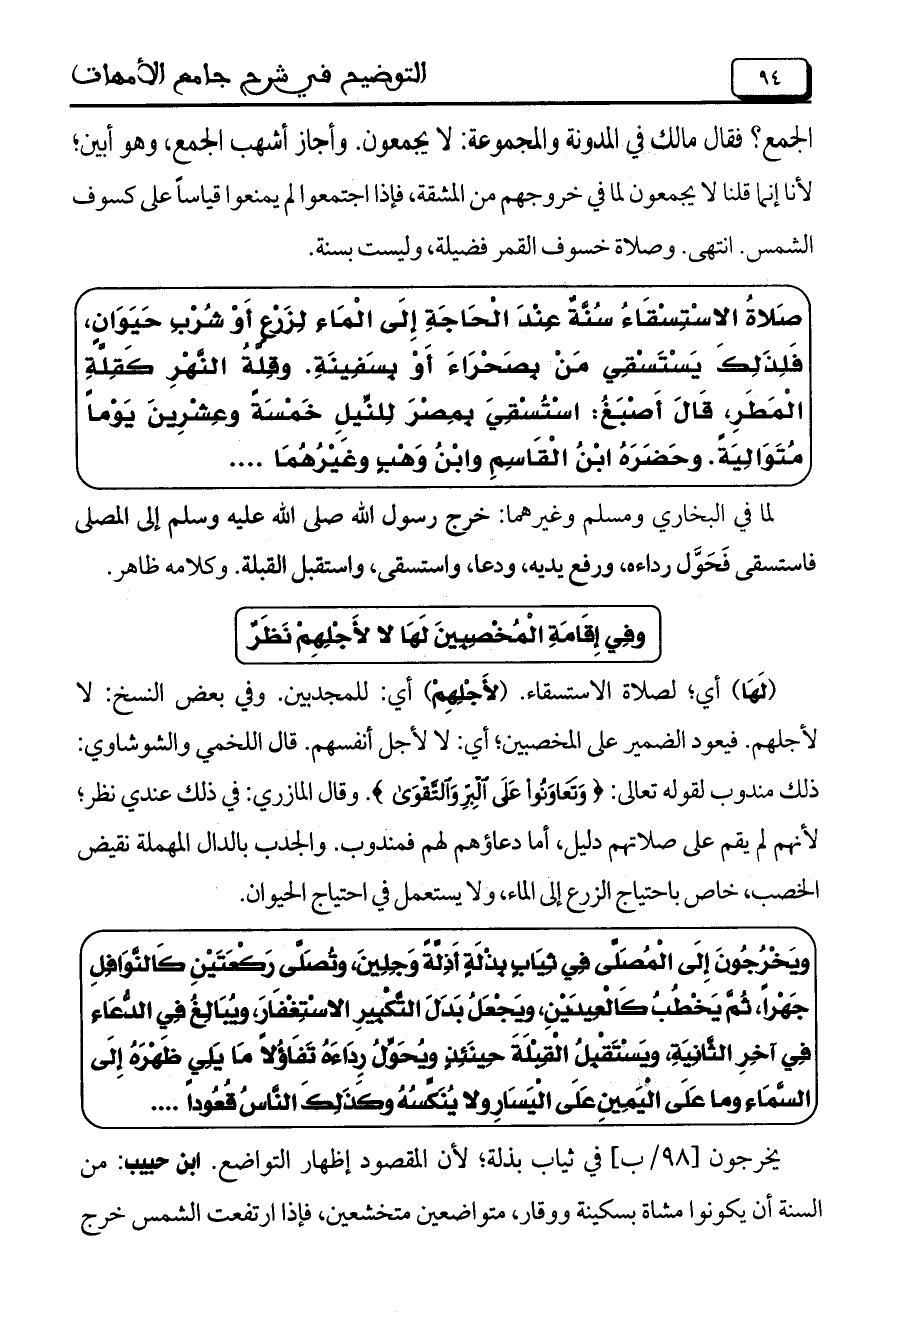 ٩٤
التوضيح في شرح جامع الأمهات
الجمع؟ فقال مالك في المدونة والمجموعة: لا يجمعون. وأجاز أشهب الجمع، وهو أبين؛
لأنا إنما قلنا لا يجمعون لما في خروجهم من المشقة، فإذا اجتمعوا لم يمنعوا قياساً على كسوف
الشمس. انتهى. وصلاة خسوف القمر فضيلة، وليست بسنة.
صَلاةُ الاسْتِسْقَاءُ سُنَّةٌ عِنْدَ الْحَاجَةِ إِلَى الْمَاءِ لِزَرْعٍ أَوْ شُرْبِ حَيَوَانٍ،
فَلِذَلِكَ يَسْتَسْقِي مَنْ بِصَحْرَاءَ أَوْ بِسَفِينَةٍ. وقِلَّةُ النَّهْرِ كَقِلَّةِ
الْمَطَرِ، قَالَ أَصْبَغُ: اسْتُسْقِيَ بِمِصْرَ لِلنِّيلِ خَمْسَةً وعِشْرِينَ يَوْماً
مُتَوَالِيَةً. وحَضَرَهُ ابْنُ الْقَاسِمِ وابْنُ وَهْبٍ وغَيْرُهُمَا ....
لما في البخاري ومسلم وغيرهما: خرج رسول الله صلى الله عليه وسلم إلى المصلى
فاستسقى فَحَوَّل رداءه، ورفع يديه، ودعا، واستسقى، واستقبل القبلة. وكلامه ظاهر.
وفِي إِقَامَةِ الْمُخْصِبِينَ لَهَا لا لأَجْلِهِمْ نَظَرٌ
(لَهَا) أي؛ لصلاة الاستسقاء. (لأَجْلِهِمْ) أي: للمجدبين. وفي بعض النسخ: لا
لأجلهم. فيعود الضمير على المخصبين؛ أي: لا لأجل أنفسهم. قال اللخمي والشوشاوي:
ذلك مندوب لقوله تعالى: ﴿ وَتَعَاوَنُواْ عَلَى ٱلْبِرِّ وَٱلتَّقْوَىٰ ﴾. وقال المازري: في ذلك عندي نظر؛
لأنهم لم يقم على صلاتهم دليل، أما دعاؤهم لهم فمندوب. والجدب بالدال المهملة نقيض
الخصب، خاص باحتياج الزرع إلى الماء، ولا يستعمل في احتياج الحيوان.
ويَخْرُجُونَ إِلَى الْمُصَلَّى فِي ثِيَابِ بِذْلَةٍ أَذِلَّةً وَجِلِينَ، وتُصَلَّى رَكْعَتَيْنِ كَالنَّوَافِلِ
جَهْراً، ثُمَّ يَخْطُبُ كَالْعِيدَيْنِ، ويَجْعَلُ بَدَلَ التَّكْبِيرِ الاسْتِغْفَارَ، ويُبَالِغُ فِي الدُّعَاءِ
فِي آخِرِ الثَّانِيَةِ، ويَسْتَقْبِلُ الْقِبْلَةَ حِينَئِذٍ ويُحَوِّلُ رِدَاءَهُ تَفَاؤُلاً مَا يَلِي ظَهْرَهُ إِلَى
السَّمَاءِ وما عَلَى الْيَمِينِ عَلَى الْيَسَارِ ولا يُنَكِّسُهُ وكَذَلِكَ النَّاسُ قُعُوداً ....
يخرجون [٩٨/ ب] في ثياب بذلة؛ لأن المقصود إظهار التواضع. ابن حبيب: من
السنة أن يكونوا مشاة بسكينة ووقار، متواضعين متخشعين، فإذا ارتفعت الشمس خرج